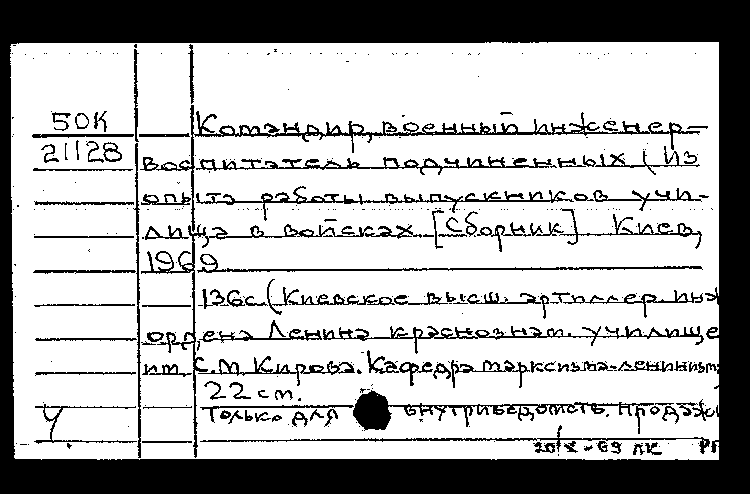 50К Командир, военный инженер-
21128 воспитатель подчиненных (Из
опыта работы выпускников учи-
лища в войсках [Сборник] Киев,
1969
136с. (Киевское высш. артиллер. инж
ордена Ленина краснознам. училище
им. С.М. Кирова. Кафедра марксизма-ленинизма
22 см.
Ч. Только для внутриведомств. продажи
20/X-69 ЛК РГ